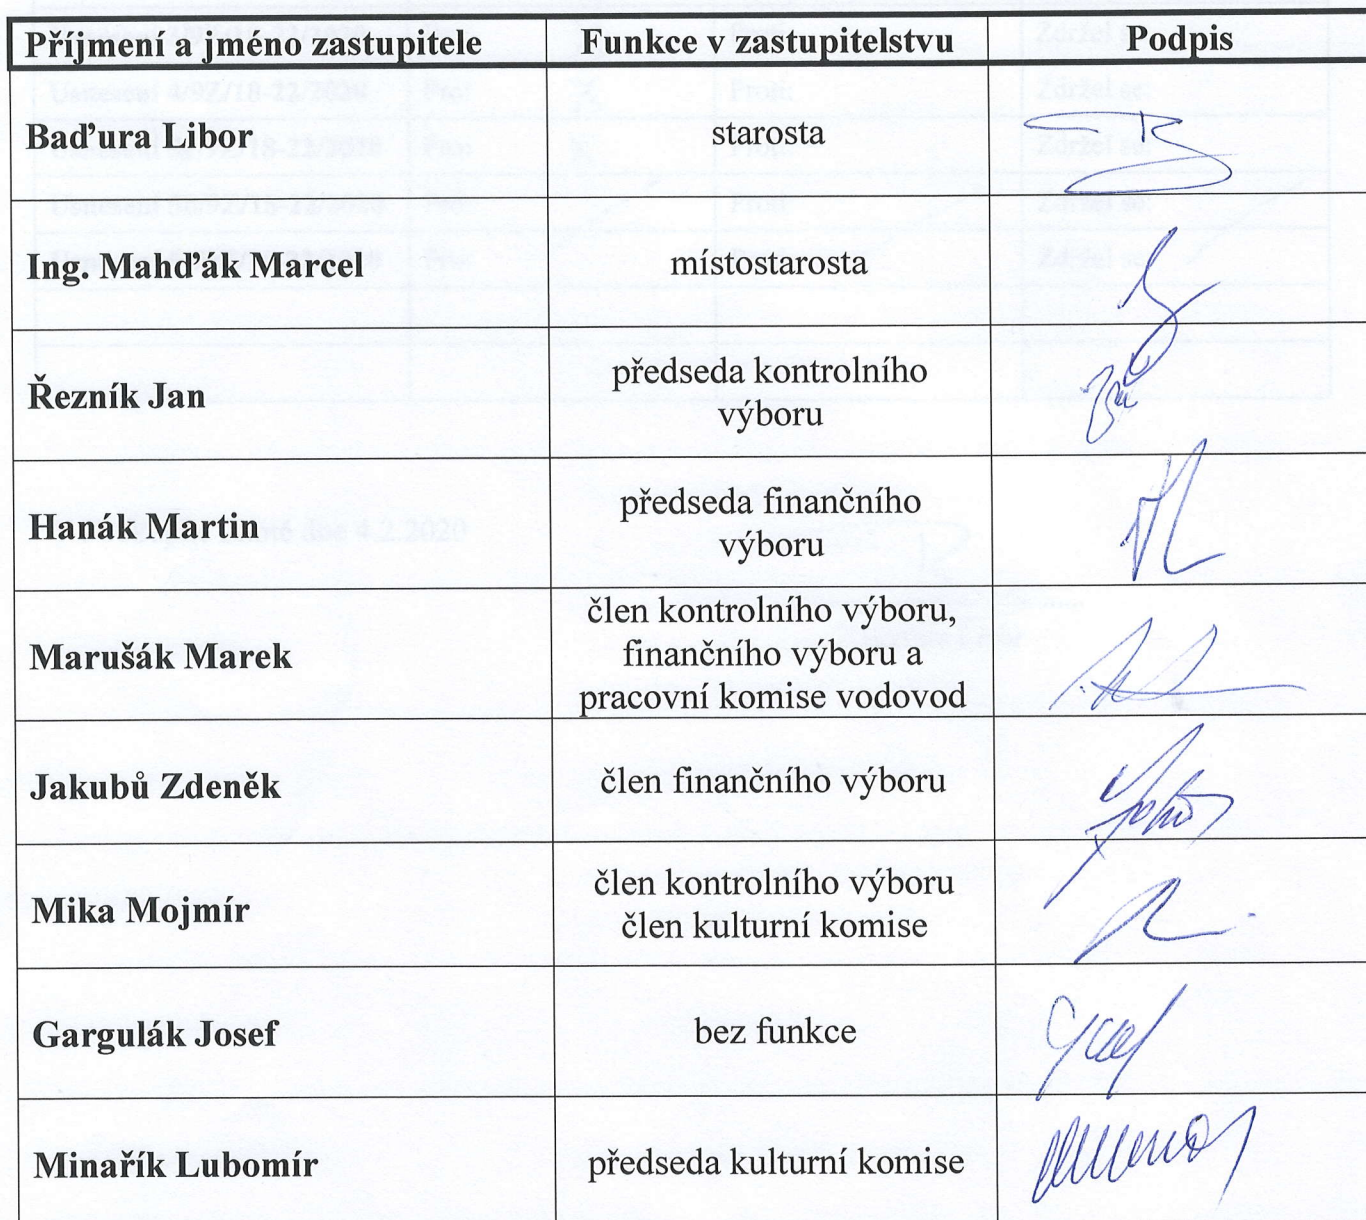 Příjmení a jméno zastupitele Funkce v zastupitelstvu Podpis
Baďura Libor starosta
Ing. Mahďák Marcel místostarosta
Řezník Jan předseda kontrolního
výboru
Hanák Martin předseda finančního
výboru
Marušák Marek člen kontrolního výboru,
finančního výboru a
pracovní komise vodovod
Jakubů Zdeněk člen finančního výboru
Mika Mojmír člen kontrolního výboru
člen kulturní komise
Gargulák Josef bez funkce
Minařík Lubomír předseda kulturní komise